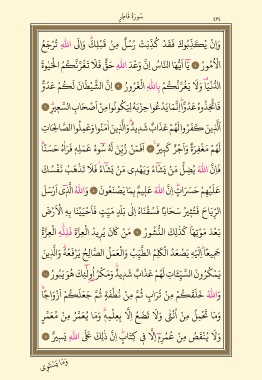 سُورَةُ فَاطِرٍ ٤٣٤
وَاِنْ يُكَذِّبُوكَ فَقَدْ كُذِّبَتْ رُسُلٌ مِنْ قَبْلِكَ وَاِلَى اللهِ تُرْجَعُ
الْاُمُورُ ۞ يَٓا اَيُّهَا النَّاسُ اِنَّ وَعْدَ اللهِ حَقٌّ فَلَا تَغُرَّنَّكُمُ الْحَيٰوةُ
الدُّنْيَا وَلَا يَغُرَّنَّكُمْ بِاللهِ الْغَرُورُ ۞ اِنَّ الشَّيْطَانَ لَكُمْ عَدُوٌّ
فَاتَّخِذُوهُ عَدُوًّا اِنَّمَا يَدْعُوا حِزْبَهُ لِيَكُونُوا مِنْ اَصْحَابِ السَّعِيرِ ۞
اَلَّذِينَ كَفَرُوا لَهُمْ عَذَابٌ شَدِيدٌ وَالَّذِينَ اٰمَنُوا وَعَمِلُوا الصَّالِحَاتِ
لَهُمْ مَغْفِرَةٌ وَاَجْرٌ كَبِيرٌ ۞ اَفَمَنْ زُيِّنَ لَهُ سُٓوءُ عَمَلِهِ فَرَاٰهُ حَسَنًا
فَاِنَّ اللهَ يُضِلُّ مَنْ يَشَٓاءُ وَيَهْدِي مَنْ يَشَٓاءُ فَلَا تَذْهَبْ نَفْسُكَ
عَلَيْهِمْ حَسَرَاتٍ اِنَّ اللهَ عَلِيمٌ بِمَا يَصْنَعُونَ ۞ وَاللهُ الَّذِٓي اَرْسَلَ
الرِّيَاحَ فَتُثِيرُ سَحَابًا فَسُقْنَاهُ اِلٰى بَلَدٍ مَيِّتٍ فَاَحْيَيْنَا بِهِ الْاَرْضَ
بَعْدَ مَوْتِهَا كَذٰلِكَ النُّشُورُ ۞ مَنْ كَانَ يُرِيدُ الْعِزَّةَ فَلِلّٰهِ الْعِزَّةُ
جَمِيعًا اِلَيْهِ يَصْعَدُ الْكَلِمُ الطَّيِّبُ وَالْعَمَلُ الصَّالِحُ يَرْفَعُهُ وَالَّذِينَ
يَمْكُرُونَ السَّيِّئَاتِ لَهُمْ عَذَابٌ شَدِيدٌ وَمَكْرُ اُولٰٓئِكَ هُوَ يَبُورُ ۞
وَاللهُ خَلَقَكُمْ مِنْ تُرَابٍ ثُمَّ مِنْ نُطْفَةٍ ثُمَّ جَعَلَكُمْ اَزْوَاجًا
وَمَا تَحْمِلُ مِنْ اُنْثٰى وَلَا تَضَعُ اِلَّا بِعِلْمِهِ وَمَا يُعَمَّرُ مِنْ مُعَمَّرٍ
وَلَا يُنْقَصُ مِنْ عُمُرِهِٓ اِلَّا فِي كِتَابٍ اِنَّ ذٰلِكَ عَلَى اللهِ يَسِيرٌ ۞
وَمَا يَسْتَوِي